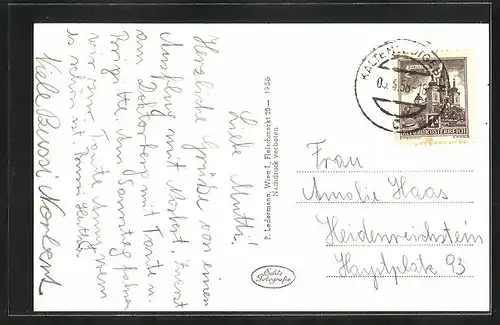 Liebe Mutti!
Herzliche Grüße von einem
Ausflug mit Norbert, zuerst
am Doktorberg mit Tante u.
Brigitte. Am Samstag fahren
wir zur Tante Anny wenn
es schön ist.
Viele Bussi Norbert
P. Ledermann, Wien I., Fleischmarkt 20 — 1958
Nachdruck verboten
Echte
Fotografie
KALTENLEUTGEBEN
REPUBLIK ÖSTERREICH
Frau
Amalie Haas
Heidenreichstein
Hauptplatz 93